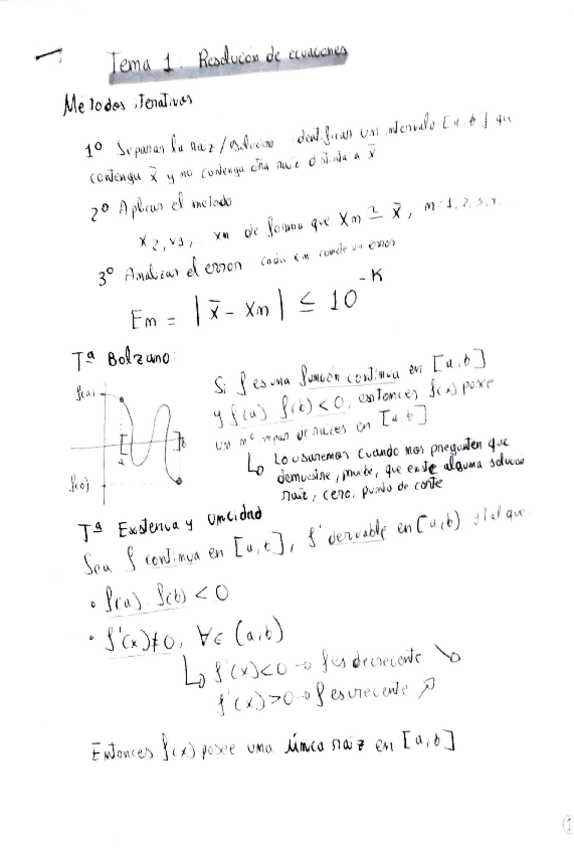 Tema 1. Resolución de ecuaciones
Métodos iterativos
1º Separar la raiz/solución identificar un intervalo [a,b] que
contenga x̄ y no contenga otra raiz distinta a x̄
2º Aplicar el metodo
x2, x3, xm de forma que xm ≃ x̄, m=1,2,3,4.
3º Analizar el error cada xm comete un error
Em = |x̄ - xm| ≤ 10^-K
Tª Bolzano:
f(a)
f(b)
a
b
Si f es una función continua en [a,b]
y f(a) f(b) < 0, entonces f(x) posee
un nº impar de raices en [a,b]
↳ Lo usaremos cuando nos pregunten que
demuestre, pruebe, que existe alguna solución
raiz, cero, punto de corte
Tª Existencia y unicidad
Sea f continua en [a,b], f' derivable en (a,b) y tal que
• f(a) f(b) < 0
• f'(x) ≠ 0, ∀ ∈ (a,b)
↳ f'(x) < 0 → f es decreciente ↘
f'(x) > 0 → f es creciente ↗
Entonces f(x) posee una única raiz en [a,b]
1